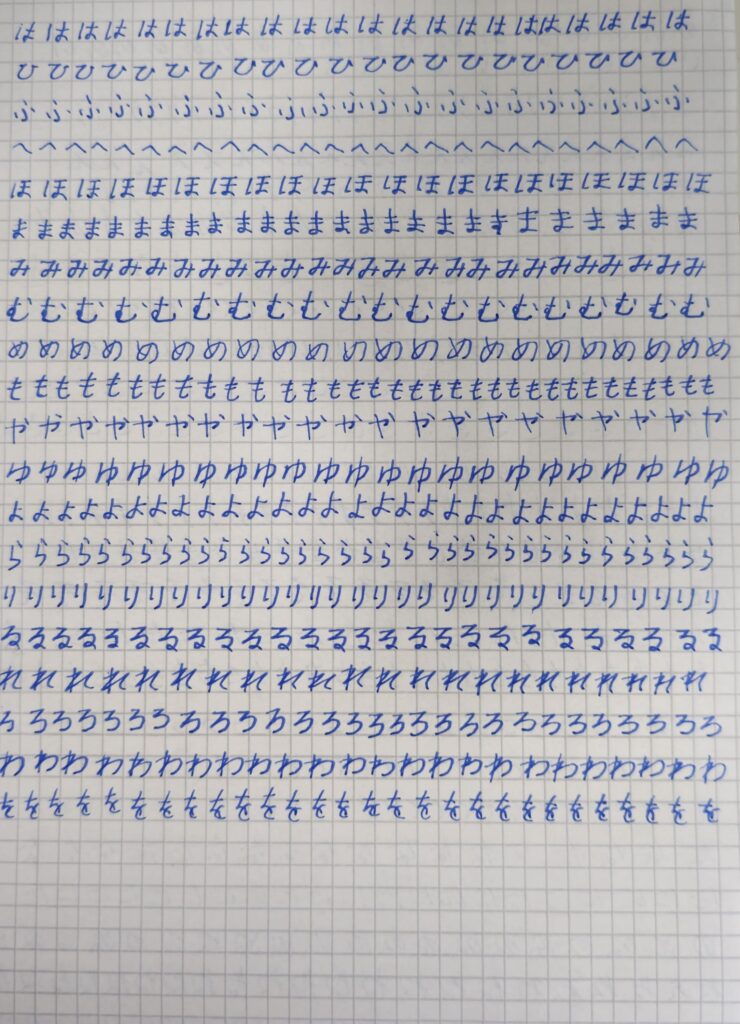 は は は は は は は は は は は は は は は は は は は は は は
ひ ひ ひ ひ ひ ひ ひ ひ ひ ひ ひ ひ ひ ひ ひ ひ ひ ひ ひ ひ ひ
ふ ふ ふ ふ ふ ふ ふ ふ ふ ふ ふ ふ ふ ふ ふ ふ ふ ふ ふ ふ ふ
へ へ へ へ へ へ へ へ へ へ へ へ へ へ へ へ へ へ へ へ へ へ へ へ へ へ
ほ ほ ほ ほ ほ ほ ほ ほ ほ ほ ほ ほ ほ ほ ほ ほ ほ ほ ほ ほ ほ
ま ま ま ま ま ま ま ま ま ま ま ま ま ま ま ま ま ま ま ま ま ま ま ま ま ま
み み み み み み み み み み み み み み み み み み み み み み み み み み
む む む む む む む む む む む む む む む む む む む む
め め め め め め め め め め め め め め め め め め め め め め
も も も も も も も も も も も も も も も も も も も も も も も も も も も も も も も も も
や や や や や や や や や や や や や や や や や や や や や
ゆ ゆ ゆ ゆ ゆ ゆ ゆ ゆ ゆ ゆ ゆ ゆ ゆ ゆ ゆ ゆ ゆ ゆ ゆ ゆ ゆ ゆ ゆ
よ よ よ よ よ よ よ よ よ よ よ よ よ よ よ よ よ よ よ よ よ よ よ よ よ よ よ よ よ よ
ら ら ら ら ら ら ら ら ら ら ら ら ら ら ら ら ら ら ら ら ら ら ら ら ら ら ら ら ら ら ら ら ら ら ら
り り り り り り り り り り り り り り り り り り り り り り り り り り り
る る る る る る る る る る る る る る る る る る る る る る る る る る
れ れ れ れ れ れ れ れ れ れ れ れ れ れ れ れ れ れ れ れ れ れ
ろ ろ ろ ろ ろ ろ ろ ろ ろ ろ ろ ろ ろ ろ ろ ろ ろ ろ ろ ろ ろ ろ ろ ろ ろ ろ ろ ろ
わ わ わ わ わ わ わ わ わ わ わ わ わ わ わ わ わ わ わ わ わ わ わ わ わ わ わ
を を を を を を を を を を を を を を を を を を を を を を を を を を を を